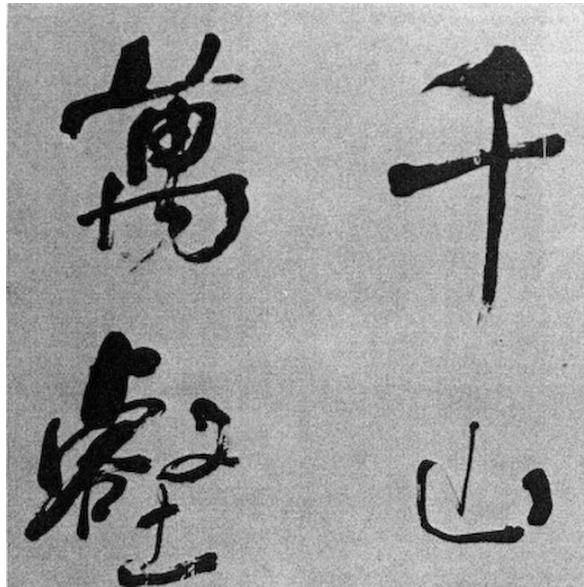 千山
萬壑